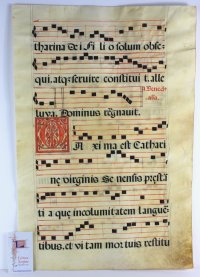 tharina dei Fi li o solum obse
qui. atq; servire constitui t. alle
luya. Dominus regnauit.
A. Benedic
Maxima est Cathari
ne virginis Se nensis presta
ti a que incolumitatem langue
tibus, et vi tam mortuis restitu